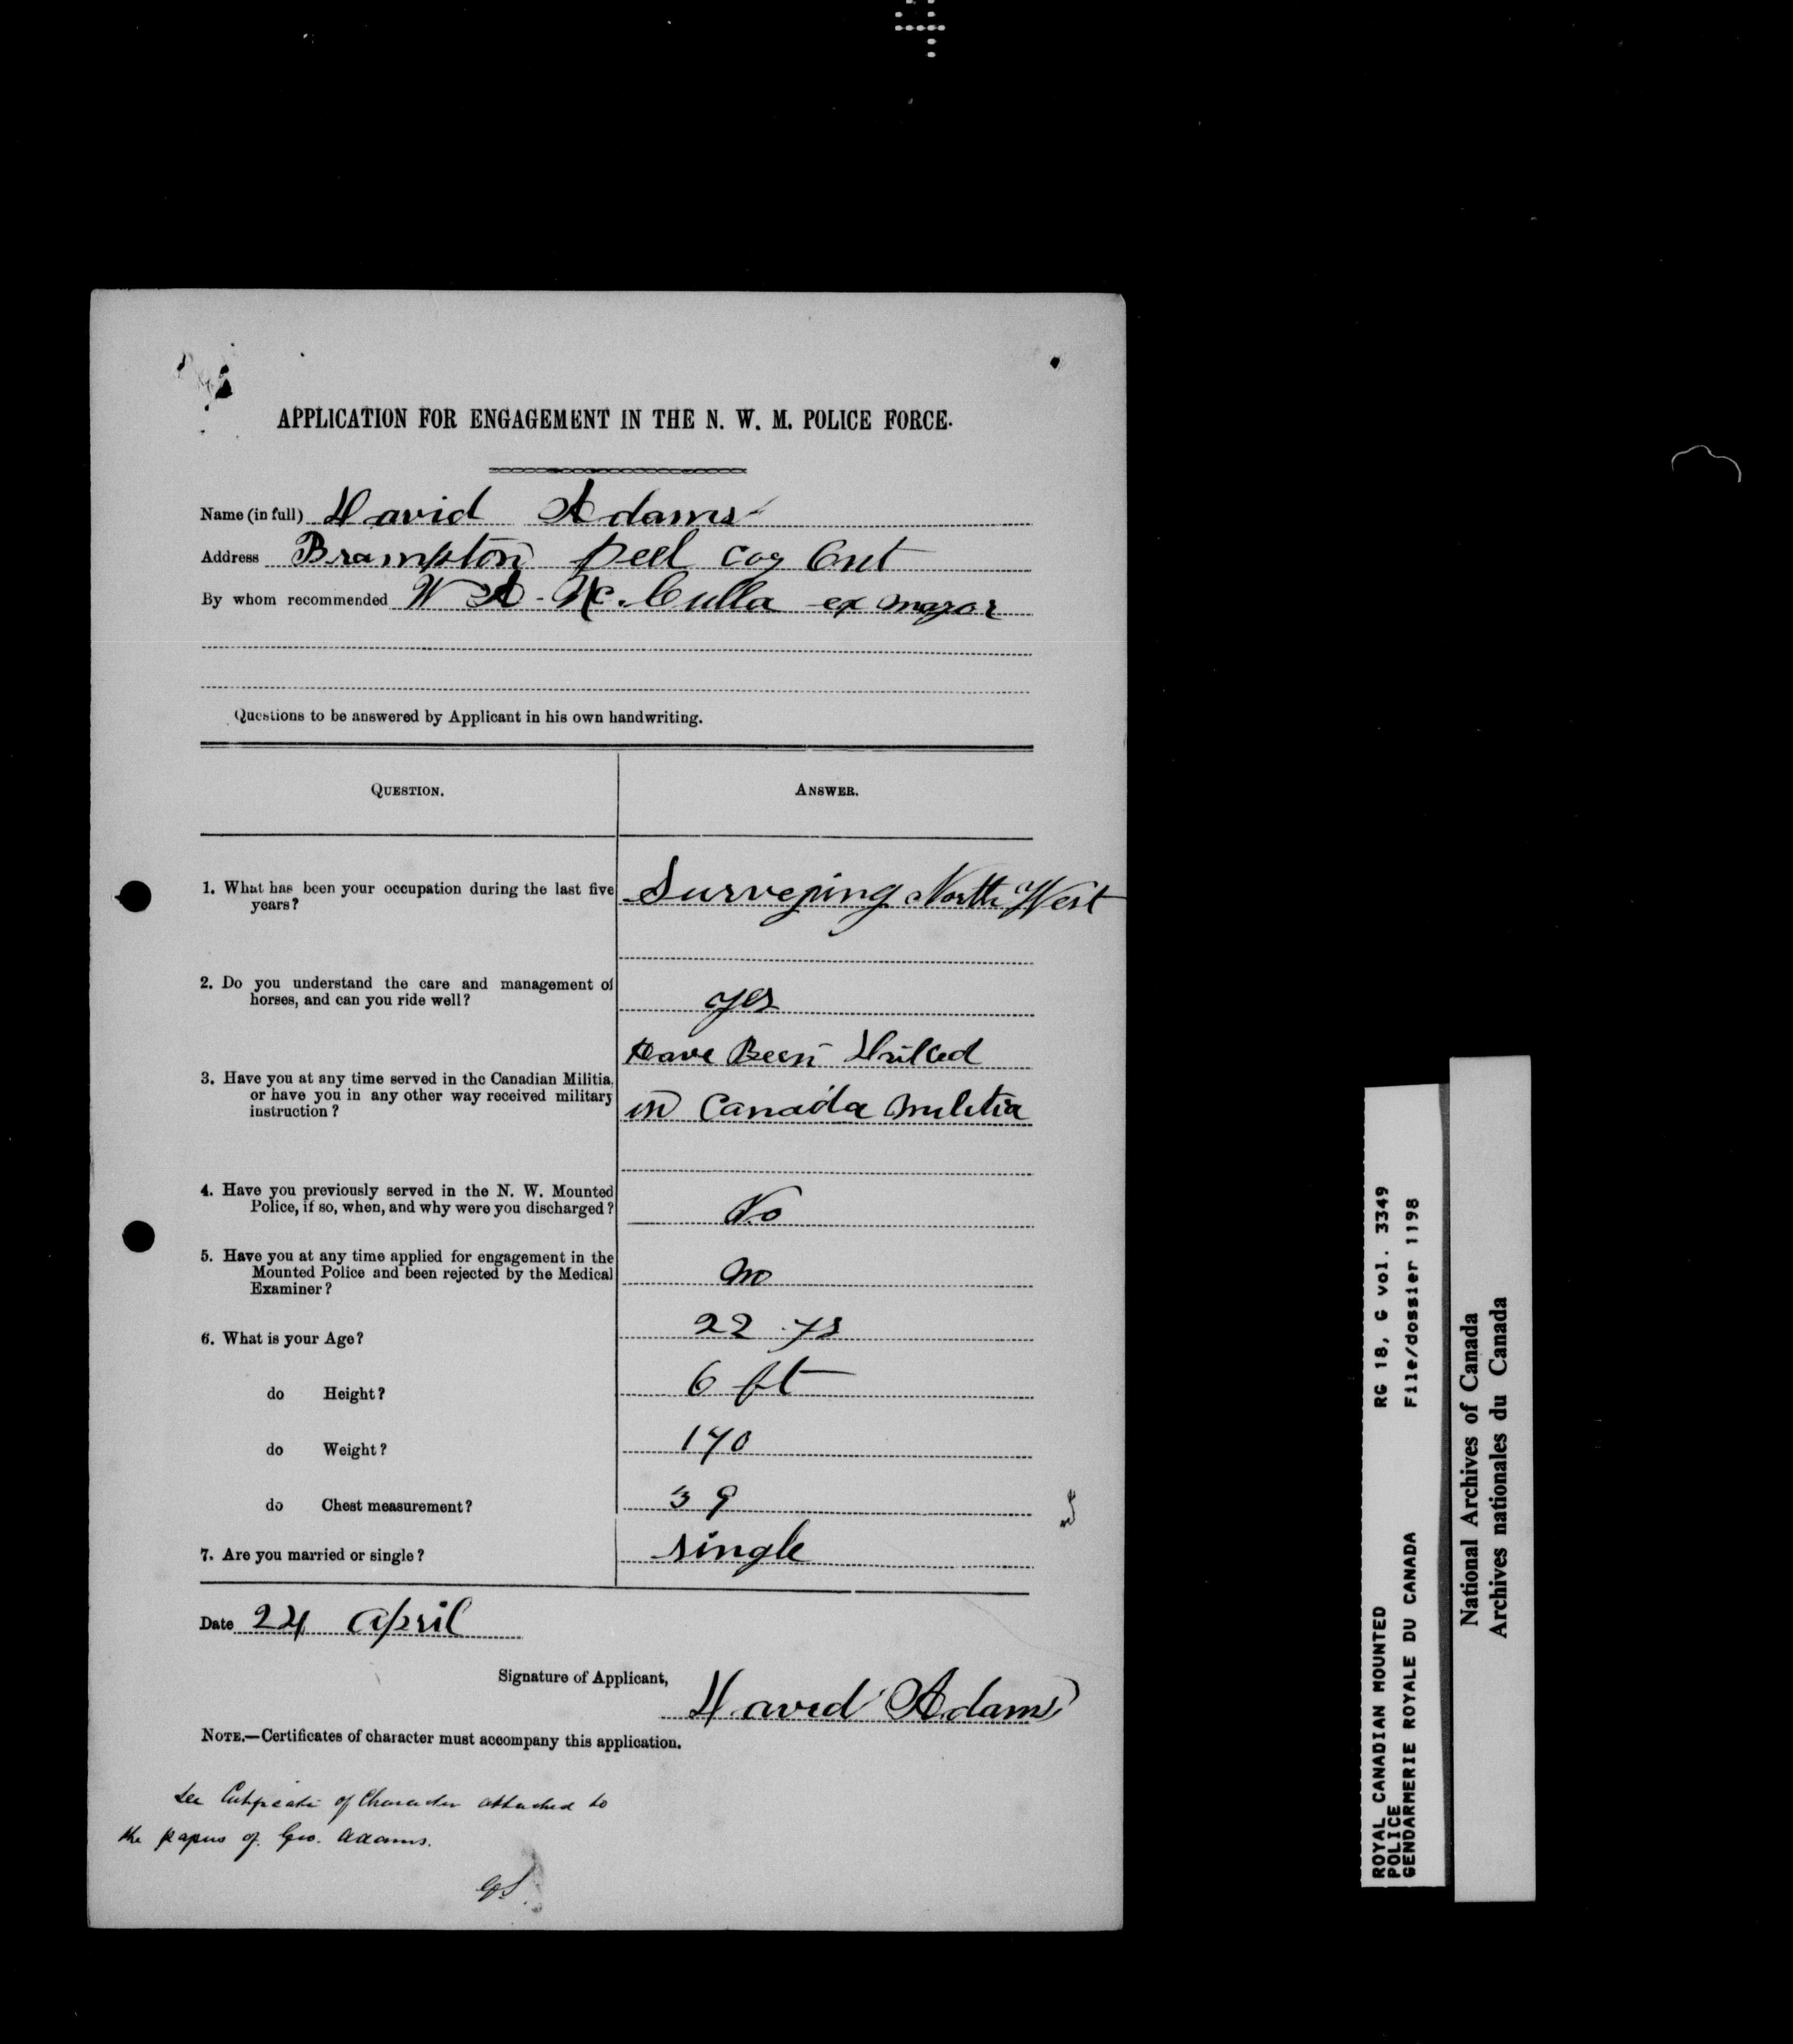 APPLICATION FOR ENGAGEMENT IN THE N. W. M. POLICE FORCE.
Name (in full) David Adams
Address Brampton peel coy Ont
By whom recommended W A. Mc.Culla ex mayor
Questions to be answered by Applicant in his own handwriting.
QUESTION. ANSWER.
1. What has been your occupation during the last five years? Surveying North West
2. Do you understand the care and management of horses, and can you ride well? yes
3. Have you at any time served in the Canadian Militia, or have you in any other way received military instruction? Have Been Drilled
in Canada militia
4. Have you previously served in the N. W. Mounted Police, if so, when, and why were you discharged? No
5. Have you at any time applied for engagement in the Mounted Police and been rejected by the Medical Examiner? no
6. What is your Age? 22 ys
do Height? 6 ft
do Weight? 170
do Chest measurement? 39
7. Are you married or single? single
Date 24 april
Signature of Applicant,
David Adams
NOTE.—Certificates of character must accompany this application.
See Certificate of Character attached to
the papers of Geo. Adams.
ROYAL CANADIAN MOUNTED RG 18, G vol. 3349
POLICE
GENDARMERIE ROYALE DU CANADA File/dossier 1198
National Archives of Canada
Archives nationales du Canada